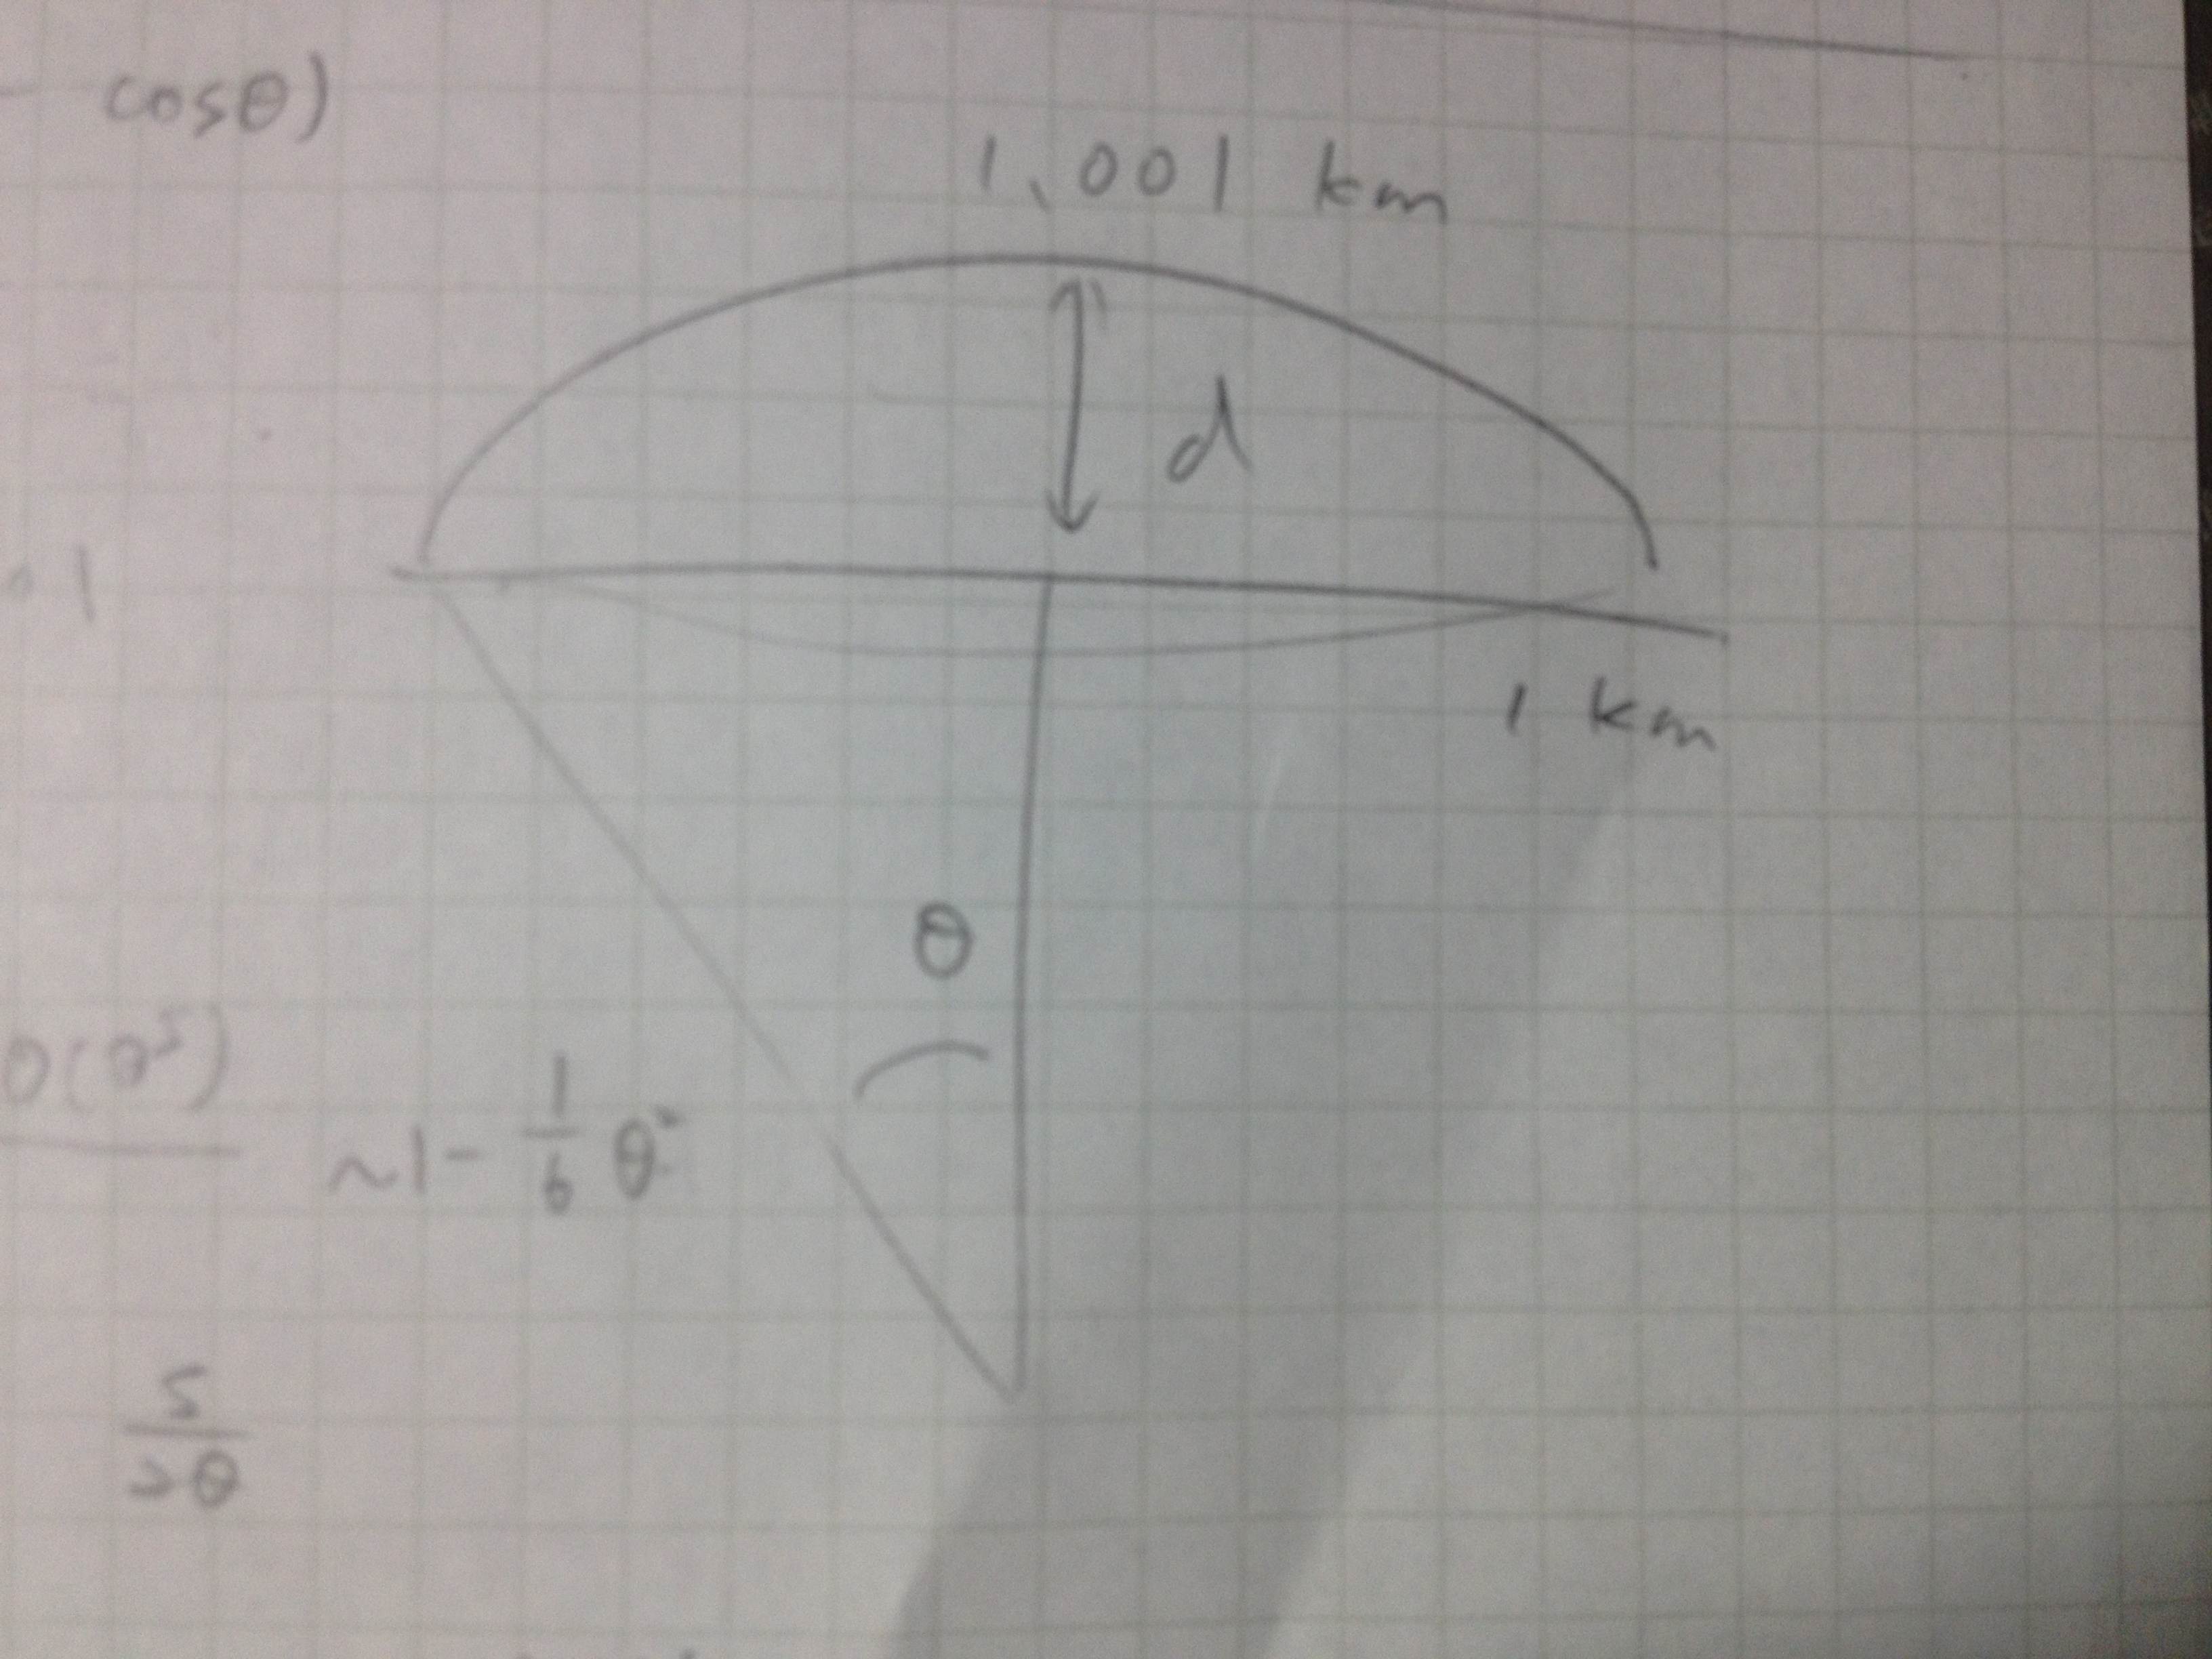 cosθ)
1.001 km
d
1
1 km
θ
O(θ⁵)
~1- 1/6 θ²
s/2θ